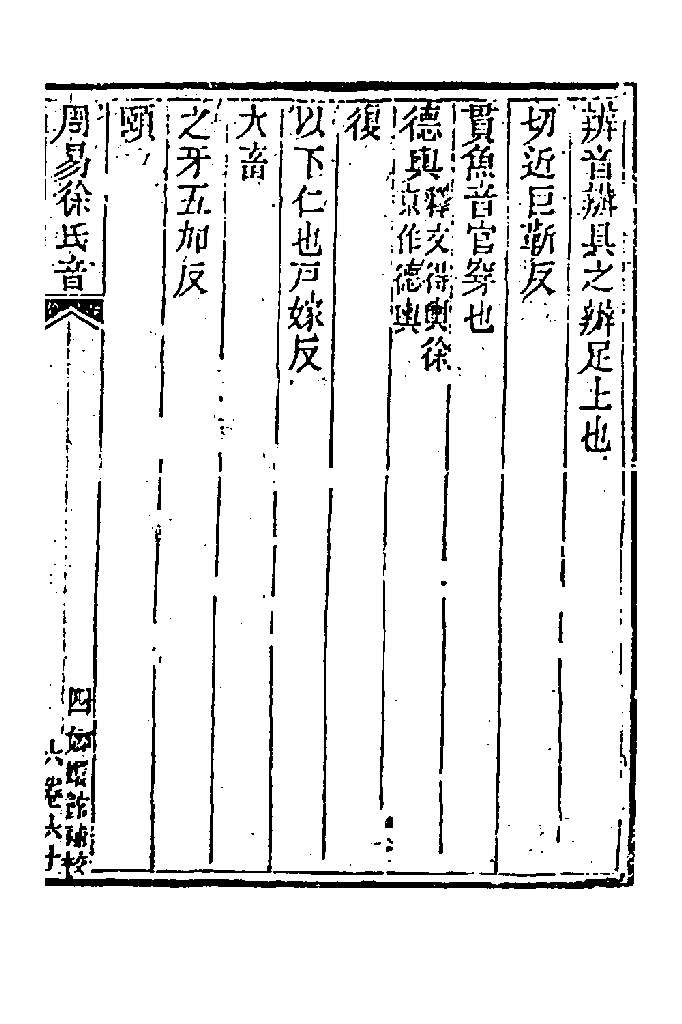 辨音辦具之辦足上也
切近巨靳反
貫魚音官穿也
德輿釋文得輿徐
京作德輿
復
以下仁也戸嫁反
大畜
之牙五加反
頤
周易徐氏音
四
館補校
卷六十